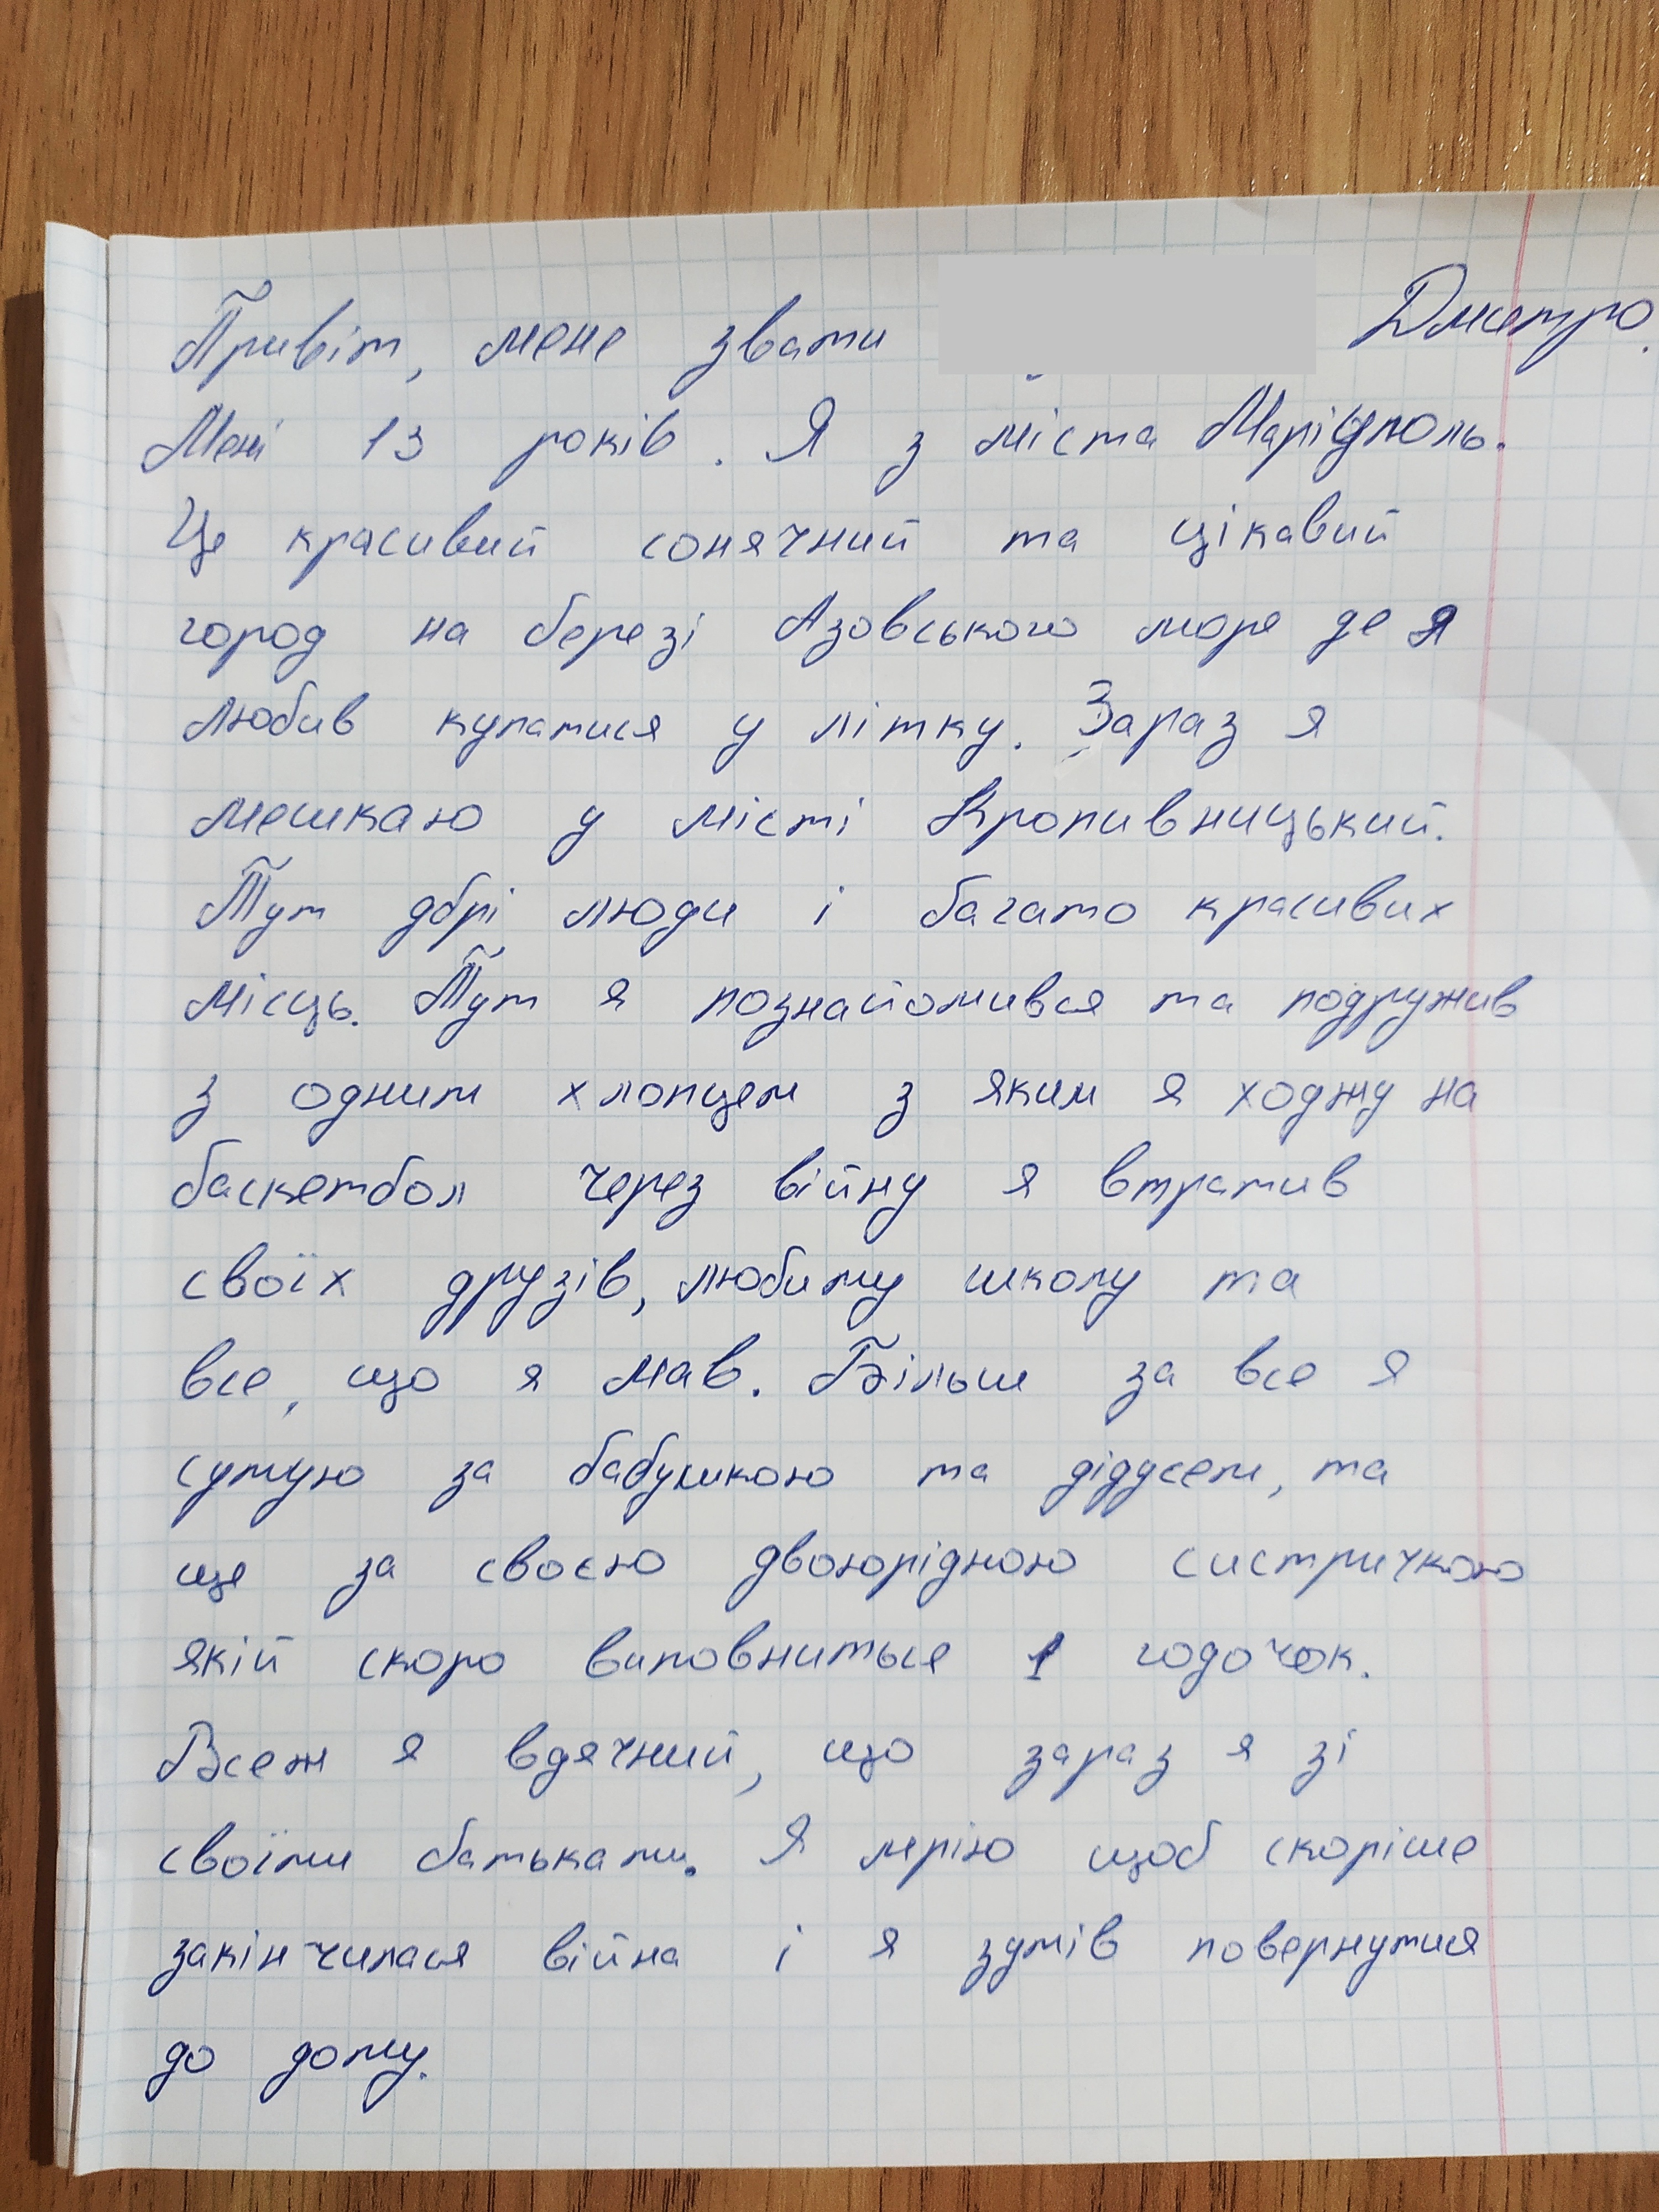 Привіт, мене звати Дмитро.
Мені 13 років. Я з міста Маріуполь.
Це красивий сонячний та цікавий
город на березі Азовського море де я
любив купатися у літку. Зараз я
мешкаю у місті Кропивницький.
Тут дбрі люди і багато красивих
місць. Тут я познайомився та подружив
з одним хлопцем з яким я ходжу на
баскетбол через війну я втратив
своїх друзів, любиму школу та
все, що я мав. Більш за все я
сумую за бабушкою та дідусем, та
ще за своєю двоюрідною систричкою
якій скоро виповниться 1 годочок.
Всеж я вдячний, що зараз я зі
своїми батьками. Я мрію щоб скоріше
закінчилася війна і я зумів повернутися
до дому.